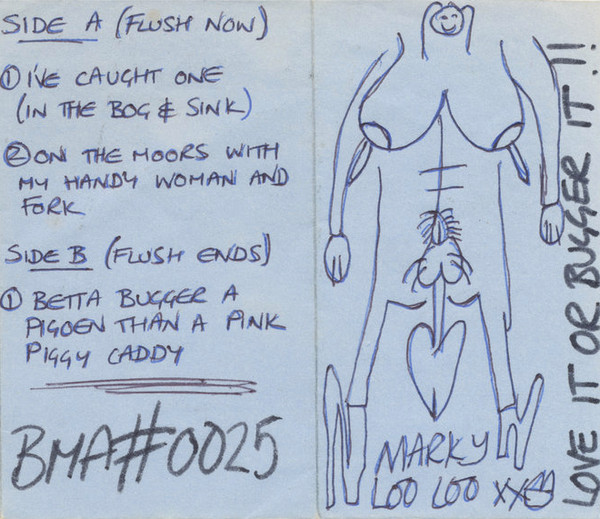 SIDE A (FLUSH NOW)
① I'VE CAUGHT ONE
(IN THE BOG & SINK)
② ON THE MOORS WITH
MY HANDY WOMAN AND
FORK
SIDE B (FLUSH ENDS)
① BETTA BUGGER A
PIGOEN THAN A PINK
PIGGY CADDY
BMA#0025
MARKY
LOO LOO XX
LOVE IT OR BUGGER IT!!